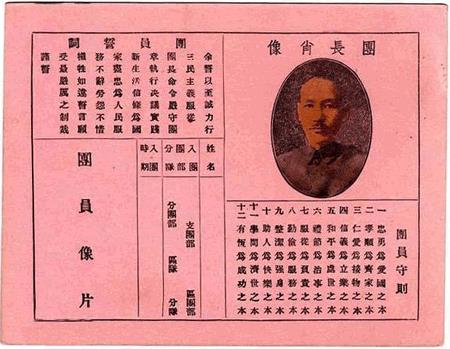 團長肖像
團員守則
一忠勇為愛國之本
二孝順為齊家之本
三仁愛為接物之本
四信義為立業之本
五和平為處世之本
六禮節為治事之本
七服從為負責之本
八勤儉為服務之本
九整潔為強身之本
十助人為快樂之本
十一學問為濟世之本
十二有恆為成功之本
團員誓詞
余誓以至誠力行
三民主義服從
團長命令嚴守團
章執行決議實踐
新生活信條為國
家盡忠為人民服
務不辭勞怨不惜
犧牲如違誓言願
受最嚴厲之制裁
謹誓
姓名
入團
團部
分隊
支團部 區團部
分團部 區隊 分隊
入團
時期
團員像片